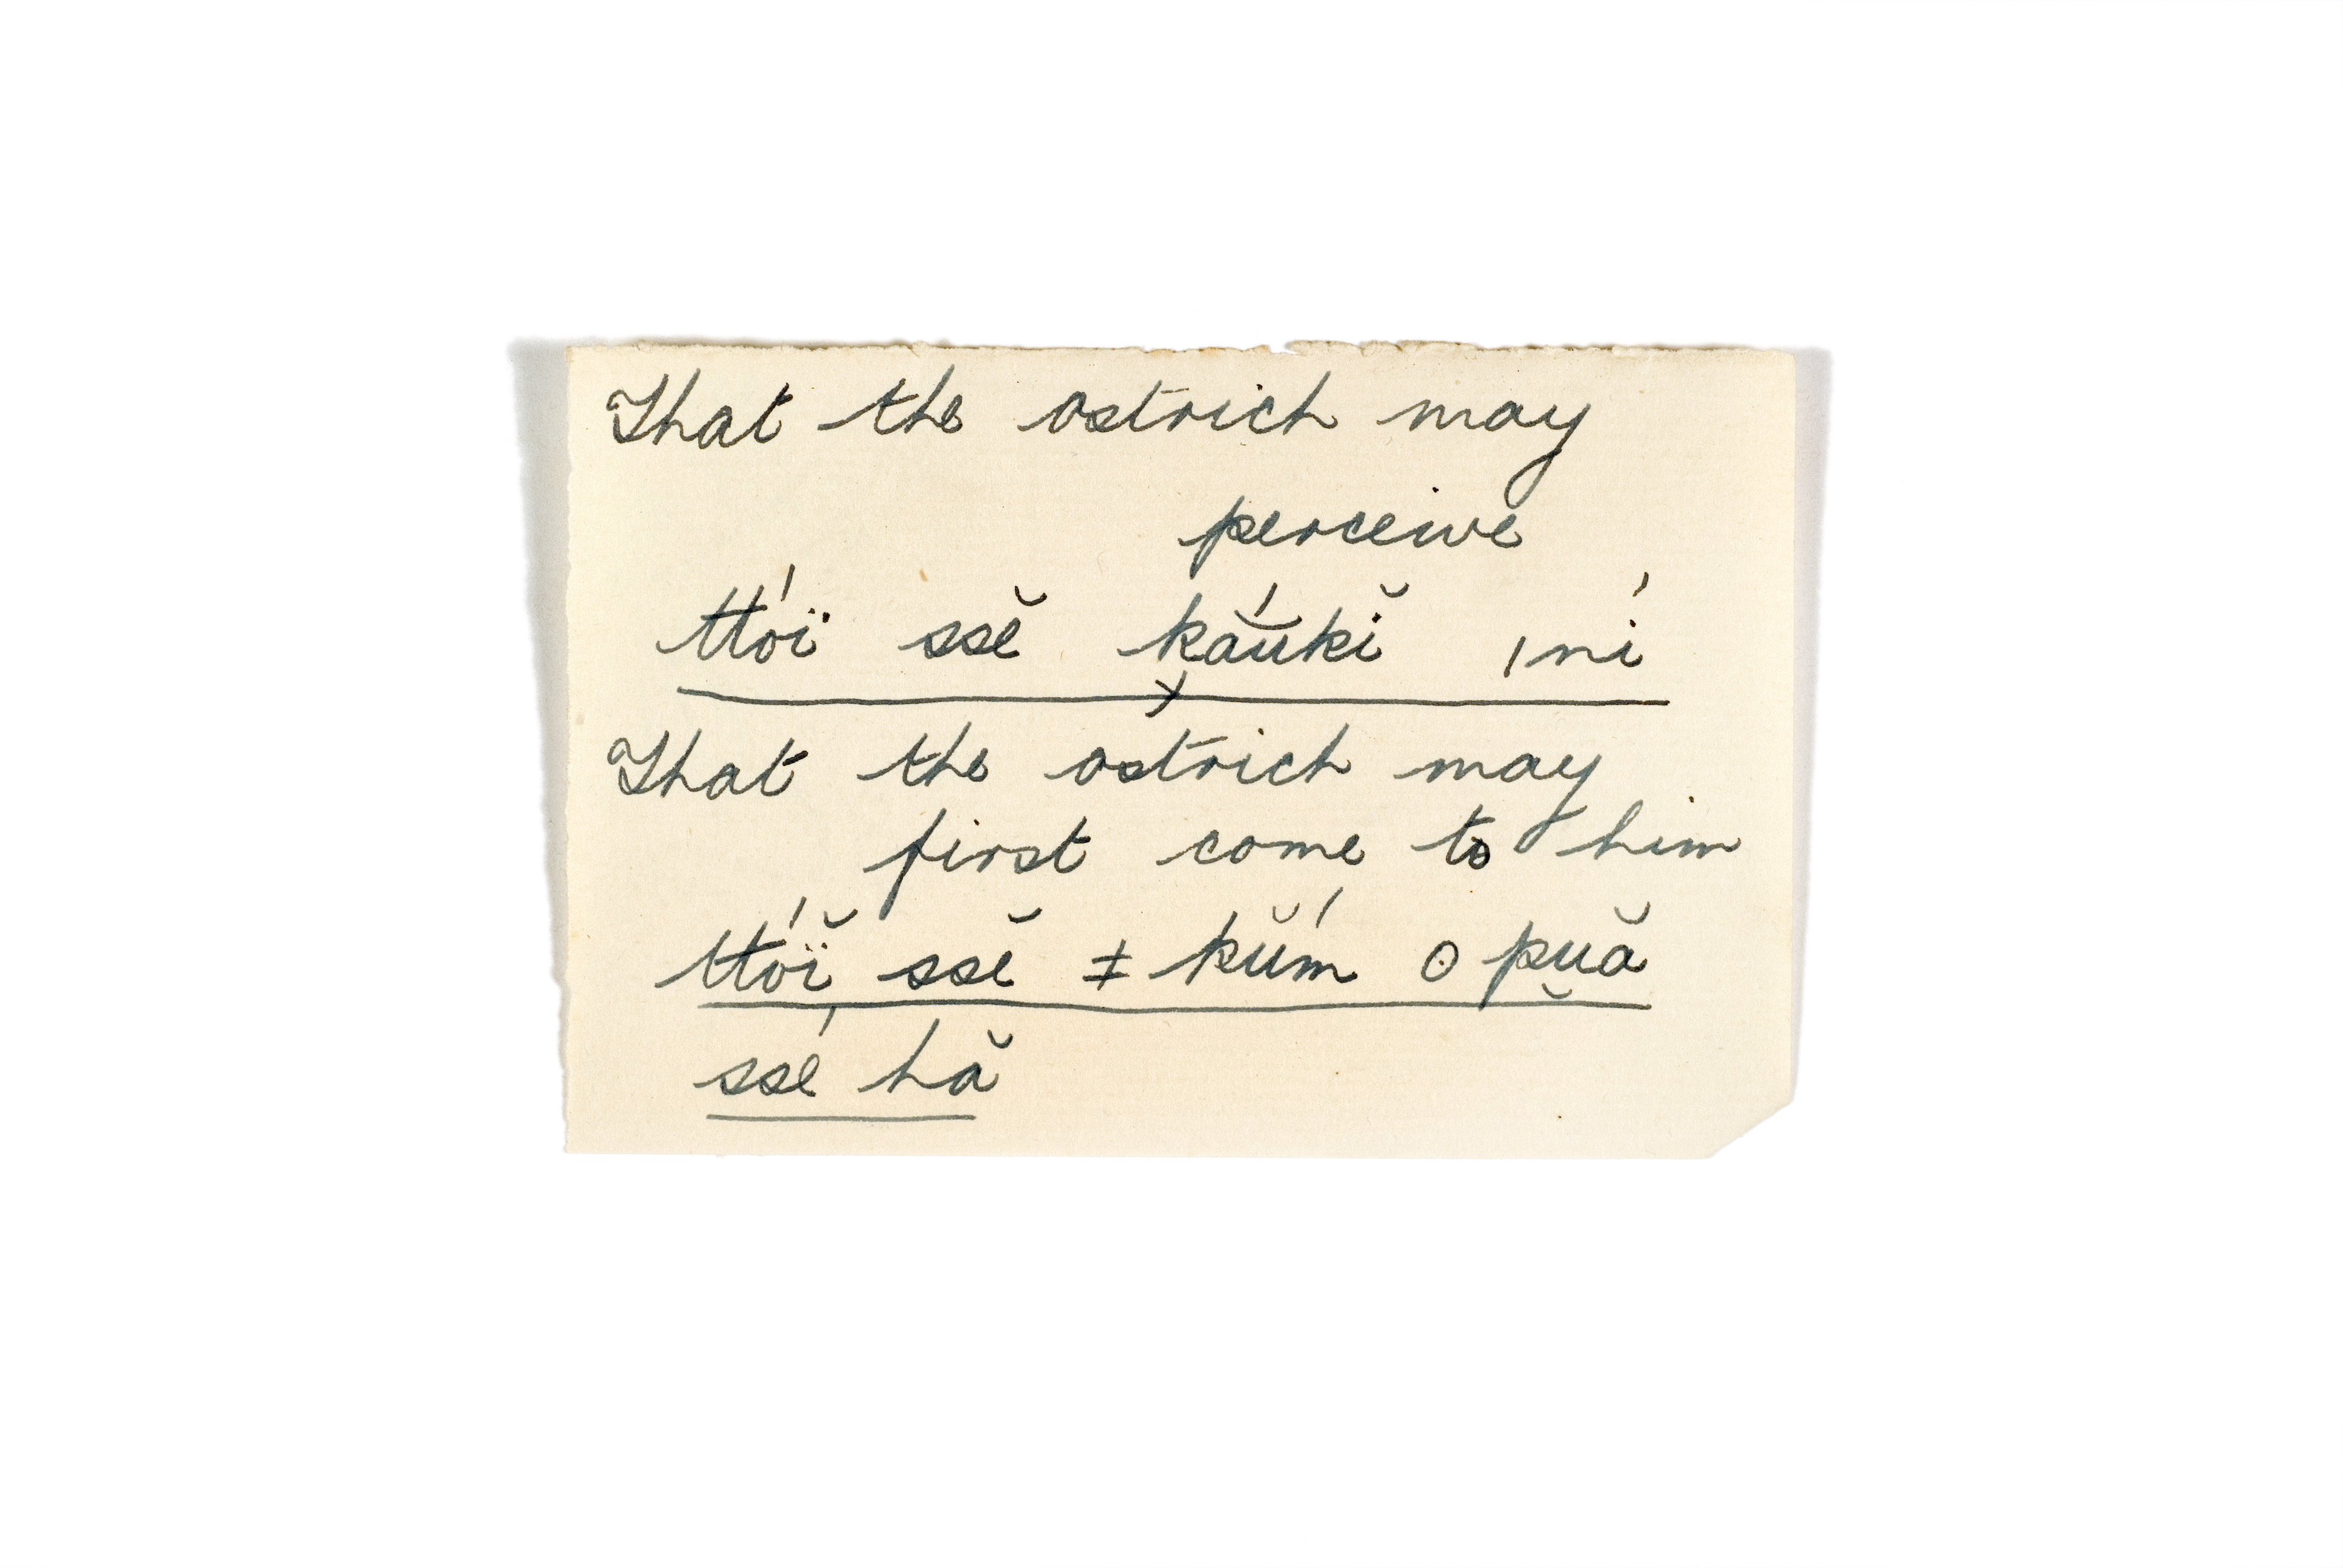 That the ostrich may
perceive
ttóï ssĕ k̯ắŭkĭ ǀní
That the ostrich may
first come to him
ttóï̆ ssĕ ǂkŭ́m ʘpu̯ă
ssé hă